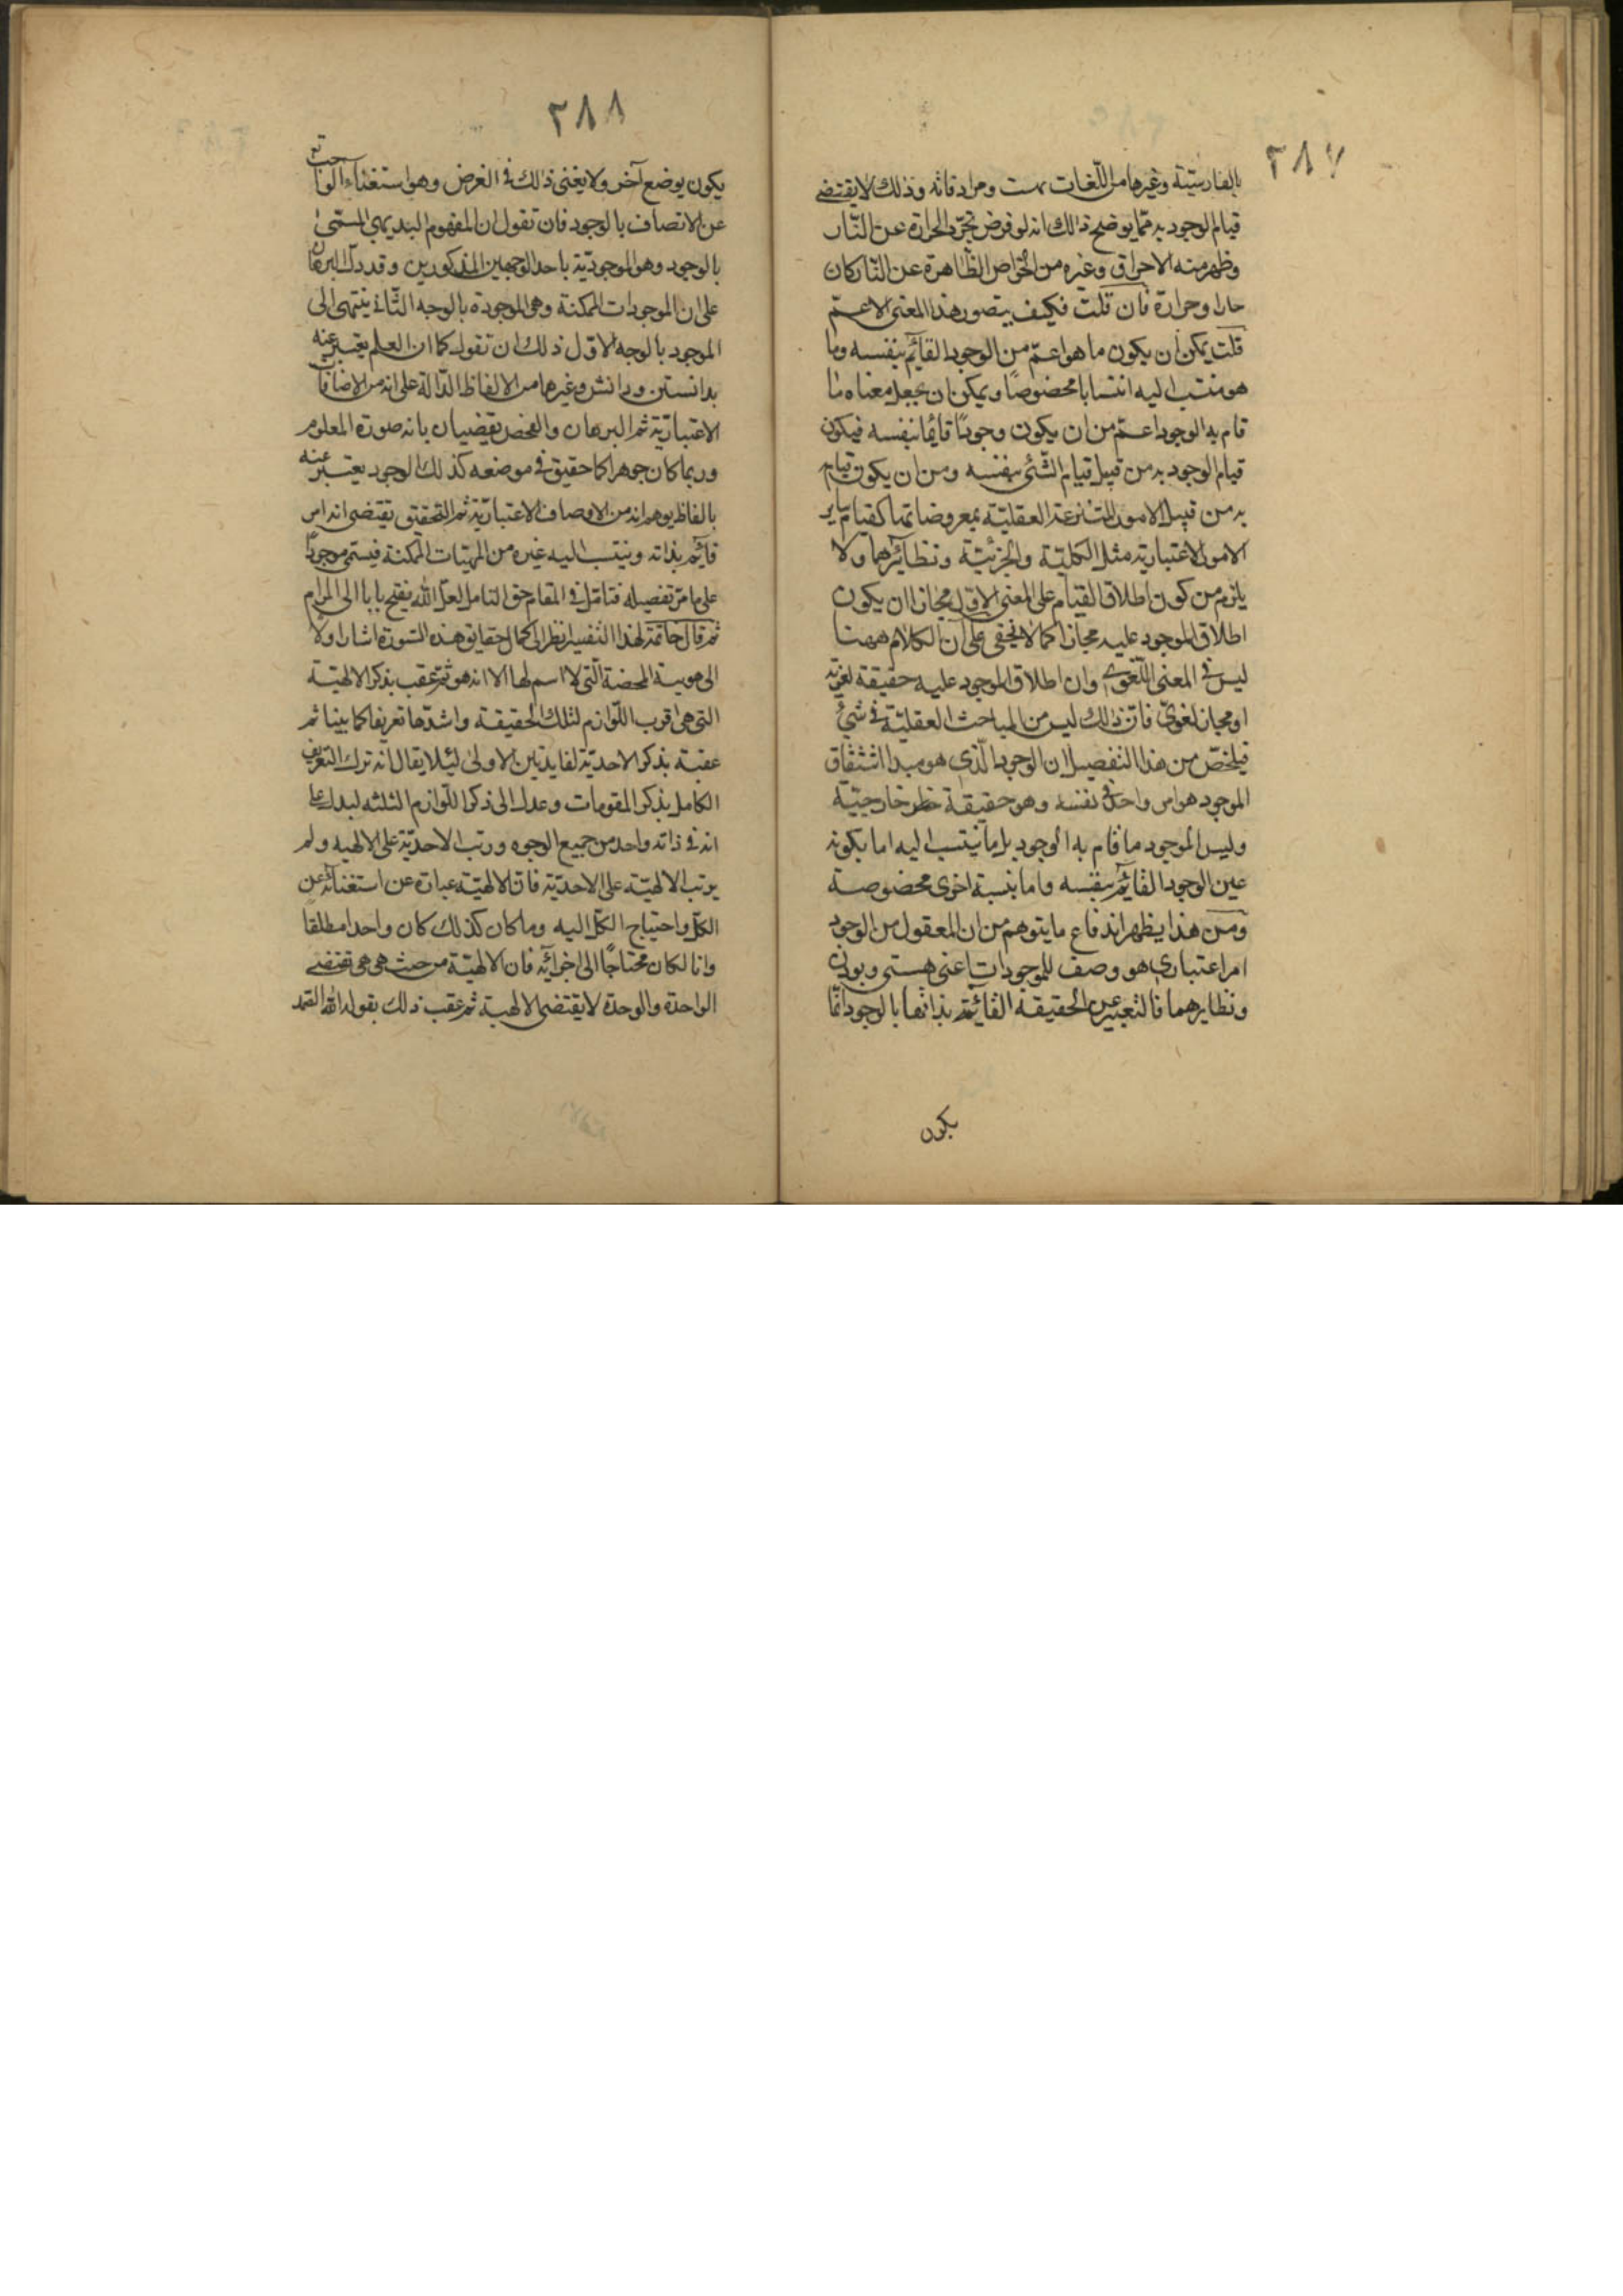 ٢٨٧
بالفارسيّة وغيرها من اللّغات بهست ومرادفاته وذلك لا يقتضى
قيام الوجود به ممّا يوضح ذالك انه لو فرض تجرّد الحرارة عن النّار
وظهر منه الاحراق وغيره من الخواص الظّاهرة عن النّار كان
حارا وحرارة فان قلت فكيف يتصور هذا المعنى الاعمّ
قلت يمكن ان يكون ما هو اعمّ من الوجود القائم بنفسه وما
هو منتسب اليه انتسابا مخصوصًا ويمكن ان يجعل معناه ما
قام به الوجود اعمّ من ان يكون وجودًا قائما بنفسه فيكون
قيام الوجود به من قبيل قيام الشّئ بنفسه ومن ان يكون قيام
به من قبيل الامور المنتزعة العقليّة بمعروضاتها كقيام ساير
الامور الاعتبارية مثل الكليّة والجزئيّة ونظائرهما ولا
يلزم من كون اطلاق القيام على المعنى الاوّل مجازا ان يكون
اطلاق الموجود عليه مجازا كما لا يخفى على انّ الكلام ههنا
ليس فى المعنى اللّغوى وان اطلاق الموجود عليه حقيقة لغويّه
او مجاز لغوىّ فانّ ذالك ليس من المباحث العقليّة فى شئ
فيلخّص من هذا التفصيل ان الوجود الّذى هو مبدا اشتقاق
الموجود هو امر واحد فى نفسه وهو حقيقة خارجيّة
وليس الموجود ما قام به الوجود بل ما ينتسب اليه اما بكونه
عين الوجود القائم بنفسه واما بنسبة اخرى مخصوصة
ومن هذا يظهر اندفاع ما يتوهم من ان المعقول من الوجود
امر اعتبارى هو وصف للموجودات اعنى هستى وبودن
ونظايرهما فالتعبير عن الحقيقة القائمة بذاتها بالوجود انّما
يكون
٢٨٨
يكون بوضع آخر ولا يغنى ذالك فى الغرض وهو استغناء الواجب تع
عن الاتصاف بالوجود فان تقول ان المفهوم البديهى المسمّى
بالوجود وهو الموجوديّة باحد الوجهين المذكورين وقد دلّ البرهان
على ان الموجودات الممكنة وهى الموجودة بالوجه الثّانى ينتهى الى
الموجود بالوجه الاوّل ذلك ان تقول كما ان العلم يعتبر عنه
بدانستن ودانش وغيرهما من الالفاظ الدّالة على انه من الاضافات
الاعتباريّة ثم البرهان والفحص يقضيان بانه صورة المعلوم
وربما كان جوهرا كما حقيق فى موضعه كذلك الوجود يعتبر عنه
بالفاظ يوهم انه من الاوصاف الاعتباريّة ثم التحقيق يقتضى انه امر
قائم بذاته وينتسب اليه غيره من المهيّات الممكنة فيسمّى موجودًا
على ما مرّ تفصيله فتامّل فى المقام حق التامل لعلّ الله يفتح بابا الى المرام
ثم قال خاتمة لهذا التفسير انظر الى كمال حقايق هذه السّورة اشار اولا
الى هويته المحضة الّتى لا اسم لها الا انه هو ثمّ عقب بذكر الالهيّة
التى هى اقرب اللّوازم لتلك الحقيقة واشدّها تعريفا كما بينا ثم
عقبه بذكر الاحديّة لفايدتين الاولى ليئلا يقال انه ترك التعريف
الكامل بذكر المقومات وعدل الى ذكر اللّوازم الثلثه ليدل على
انه فى ذاته واحد من جميع الوجوه ورتب الاحديّة على الالهيه ولم
يرتب الالهيّة على الاحديّة فانّ الالهيّة عبارة عن استغنائه عن
الكلّ واحتياج الكلّ اليه وما كان كذلك كان واحدا مطلقا
والّا لكان محتاجًا الى اجزائه فان الالهيّة من حيث هى هى تقتضى
الواحدة والوحدة لا يقتضى الالهية ثم عقب ذالك بقوله الله الصّمد